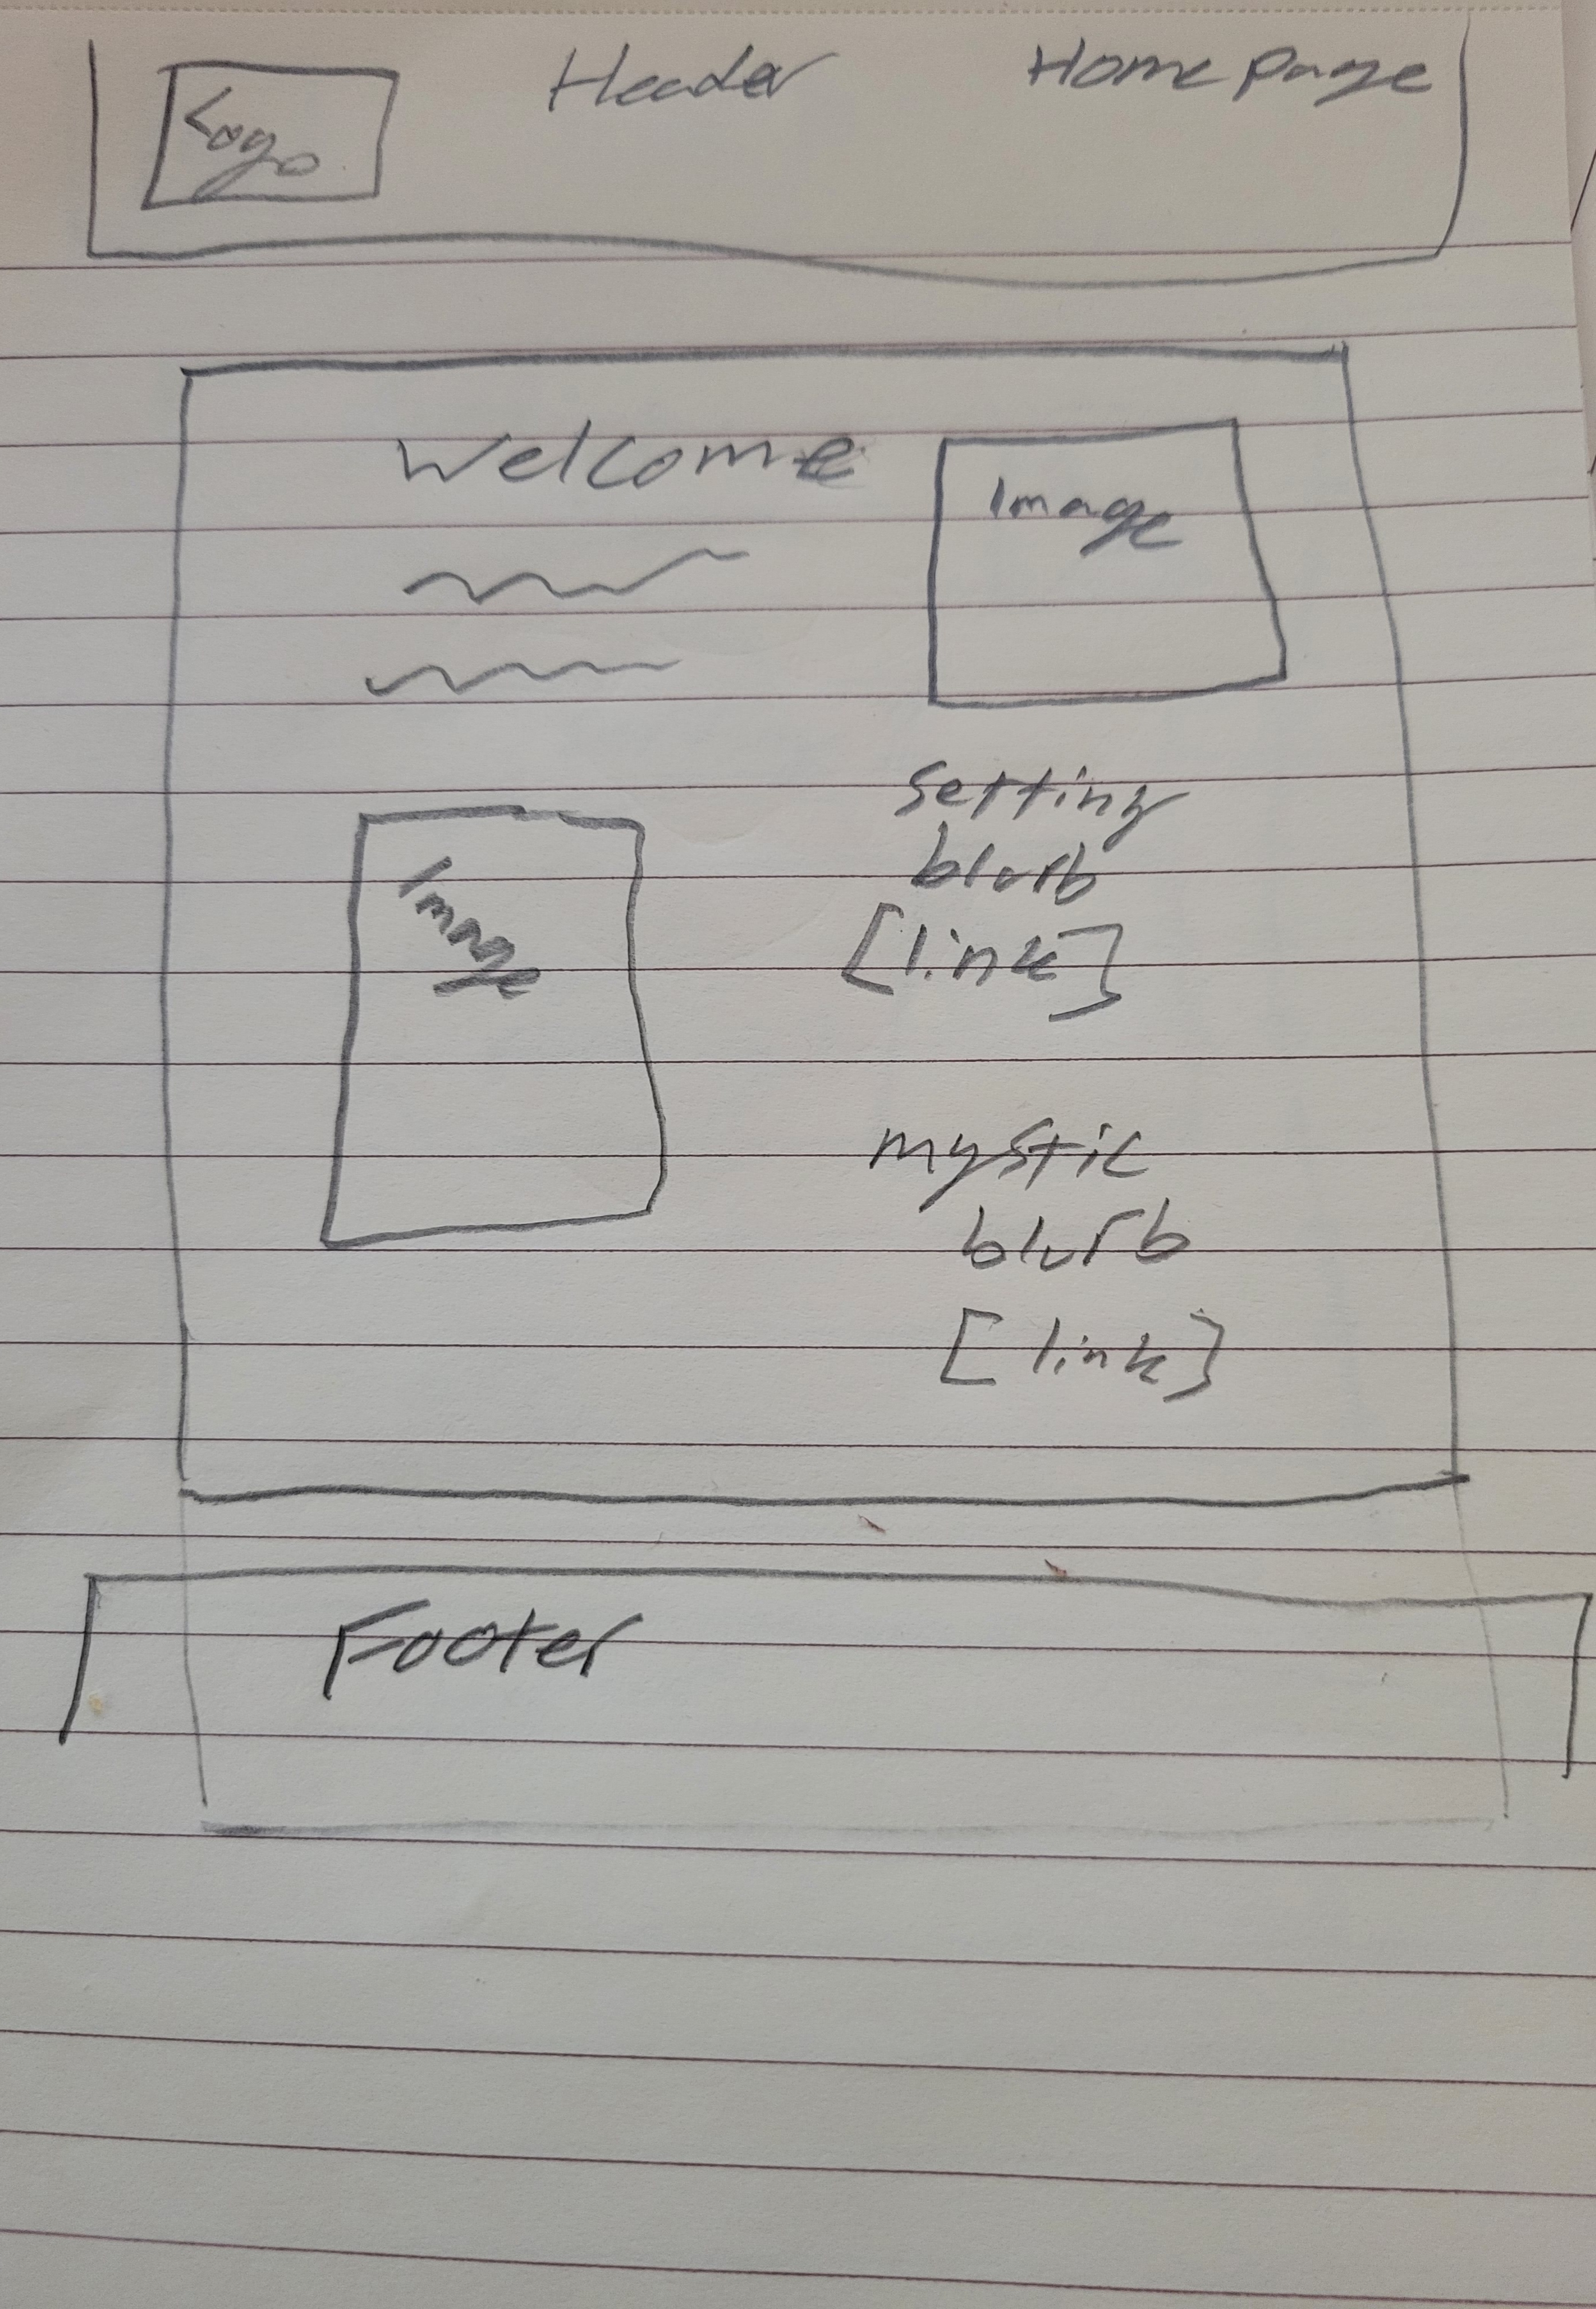 Logo
Header
Home Page
Welcome
Image
Setting
blurb
[link]
Image
mystic
blurb
[link]
Footer